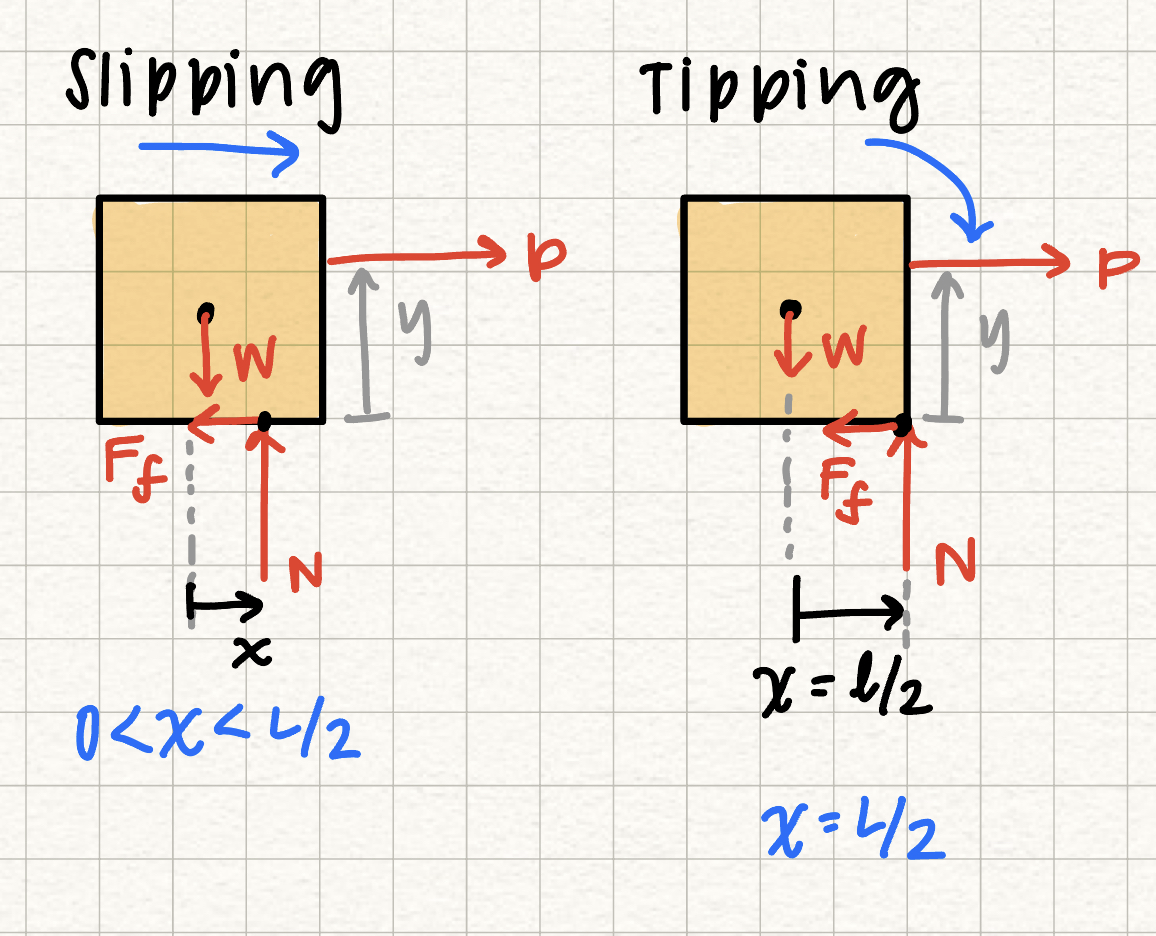 Slipping
P
y
W
F_f
N
x
0 < x < L/2
Tipping
P
y
W
F_f
N
x = l/2
x = L/2